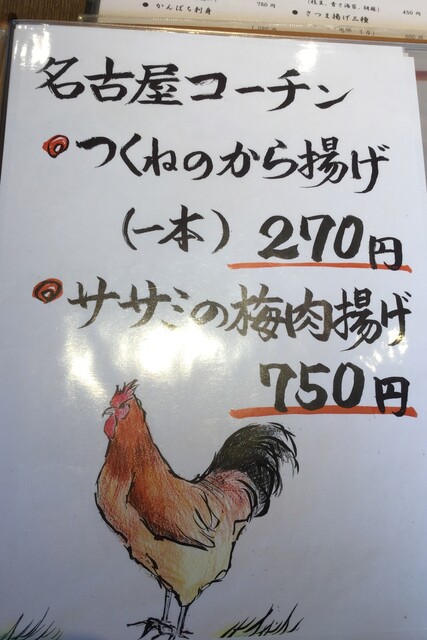 ● かんぱち刺身 780円
● さつま揚げ三種 450円
名古屋コーチン
つくねのから揚げ
(一本) 270円
ササミの梅肉揚げ
750円